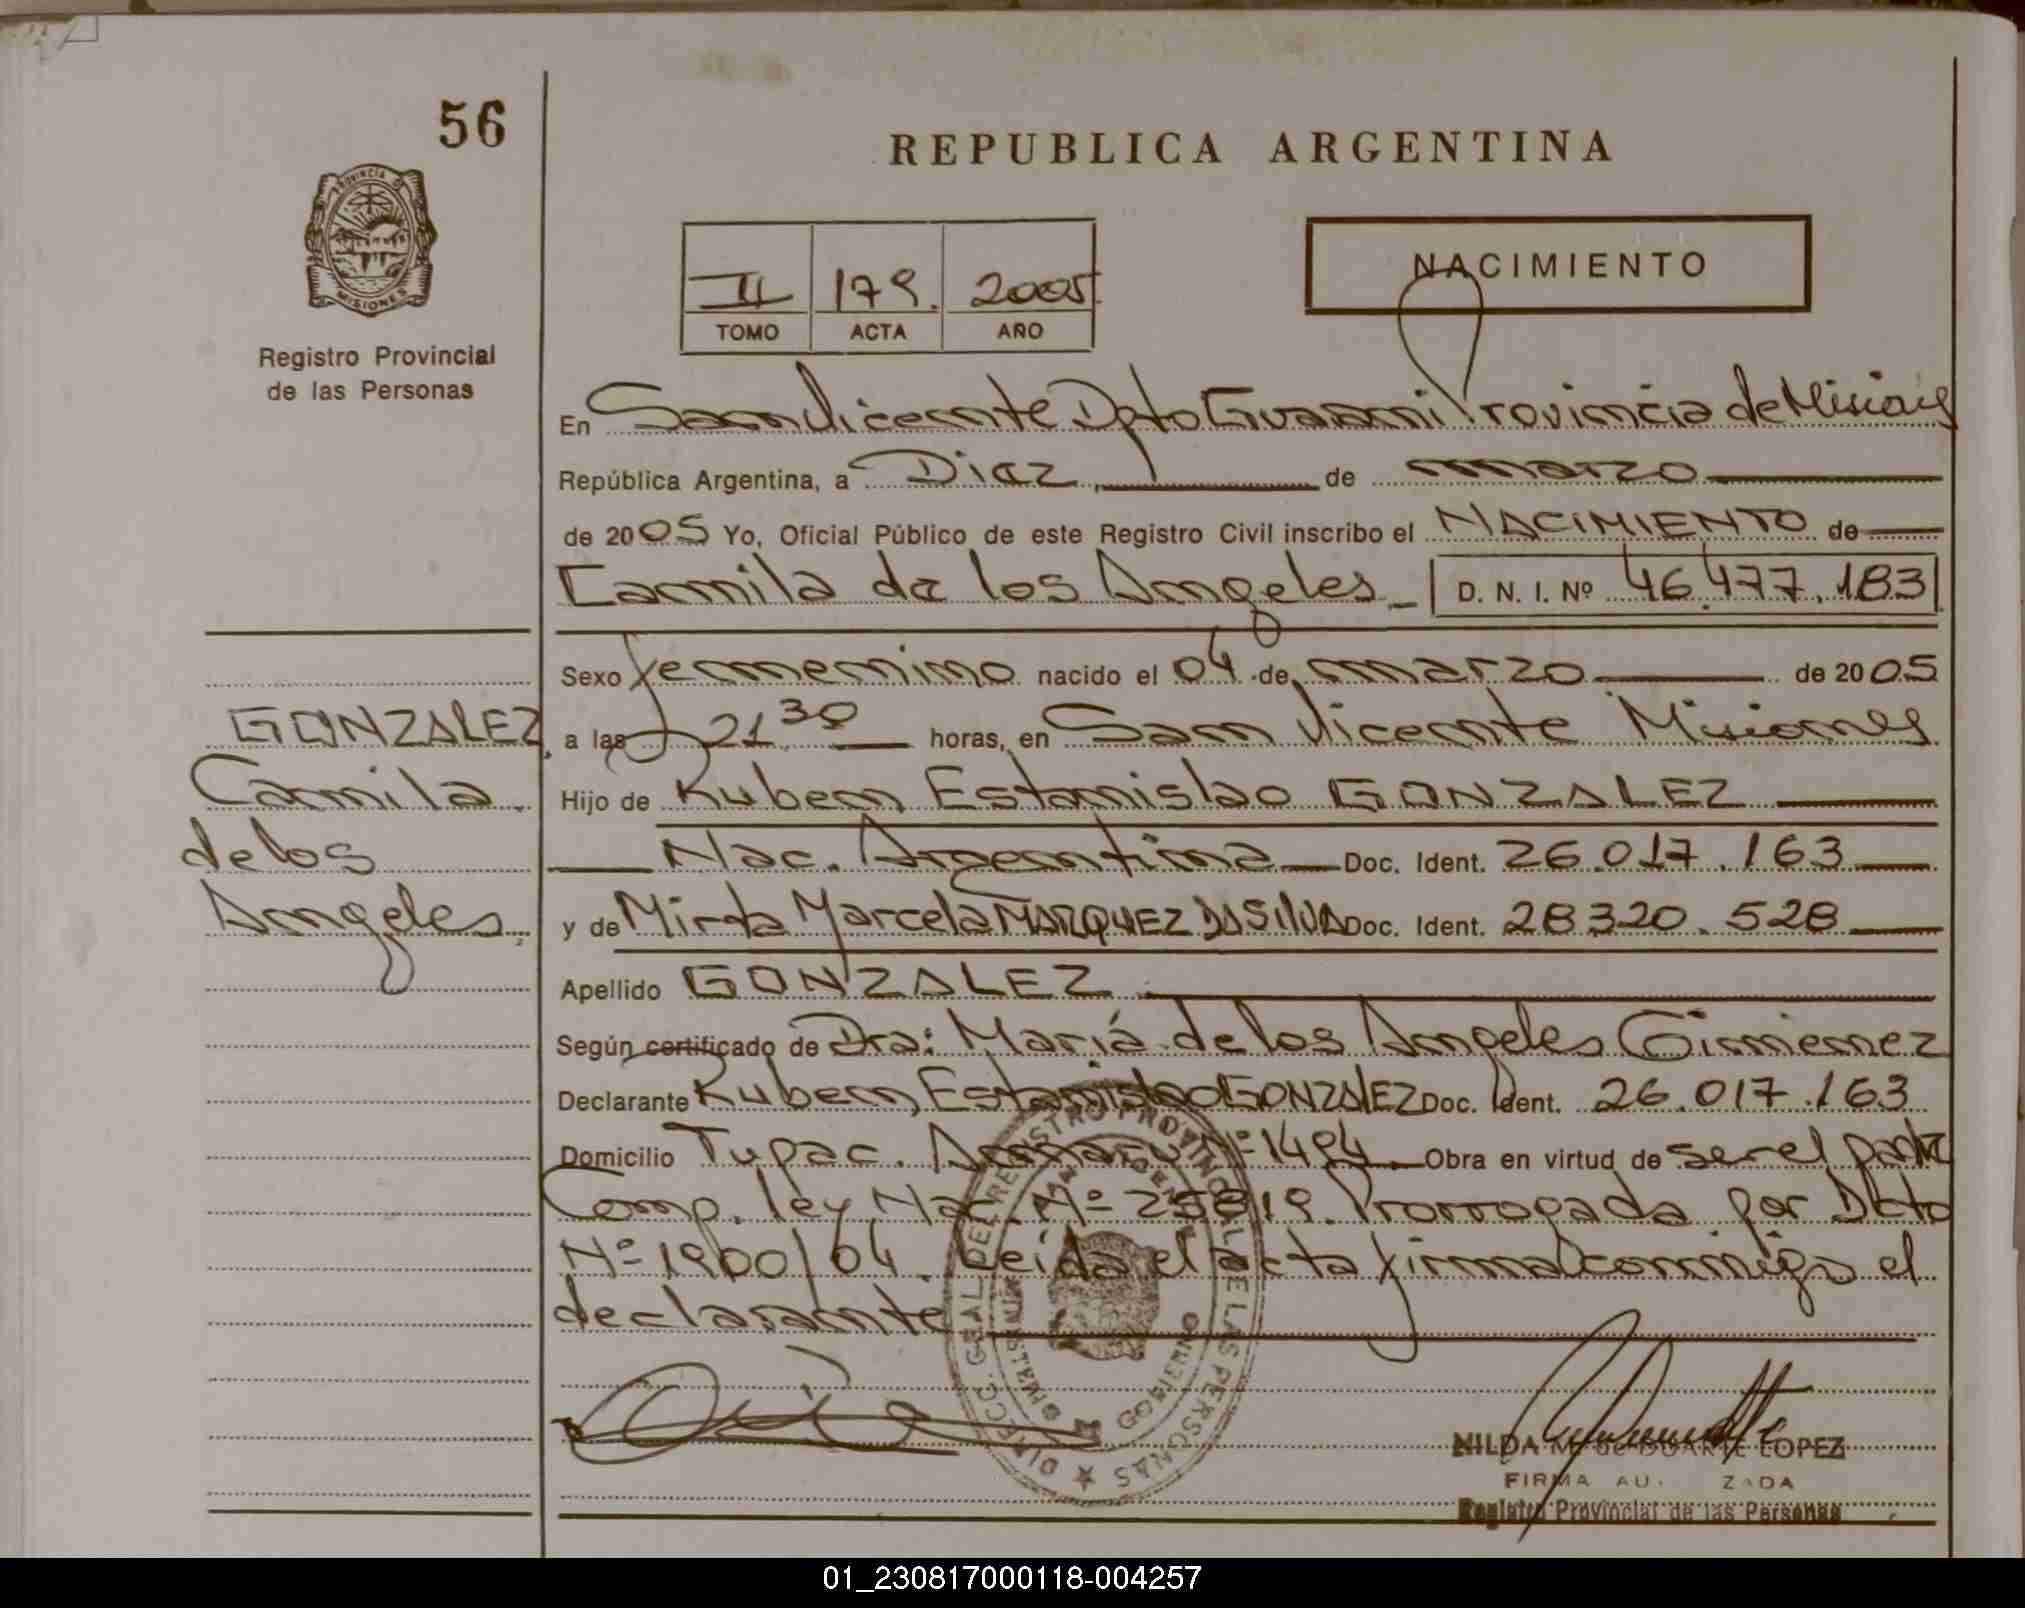 56
REPUBLICA ARGENTINA
PROVINCIA D
MISIONES
Registro Provincial
de las Personas
II 179. 2005
TOMO ACTA AÑO
NACIMIENTO
En San Vicente Dpto Guarani Provincia de Misiones
República Argentina, a Diez de marzo
de 2005 Yo, Oficial Público de este Registro Civil inscribo el NACIMIENTO de
Camila de los Angeles D. N. I. Nº 46.477.183
Sexo femenino nacido el 04 de marzo de 2005
a las 21 30 horas, en San Vicente Misiones
Hijo de Ruben Estanislao GONZALEZ
Nac. Argentina Doc. Ident. 26.017.163
y de Mirta Marcela MARQUEZ DA SILVA Doc. Ident. 28320.528
Apellido GONZALEZ
Según certificado de Dra: María de los Angeles Gimenez
Declarante Ruben Estanislao GONZALEZ Doc. Ident. 26.017.163
Domicilio Tupac. Amaru Nº 1494 Obra en virtud de ser el padre
Comp. ley Nac. Nº 25819. Prorrogada por Dcto
Nº 1900/04. Leída el acta firma conmigo el
declarante
GONZALEZ,
Camila
de los
Angeles.
DIRECC. GRAL. DEL REGISTRO PROVINCIAL DE LAS PERSONAS
GOBIERNO
NILDA M. de DUARTE LOPEZ
FIRMA AU ZADA
Registro Provincial de las Personas
01_230817000118-004257